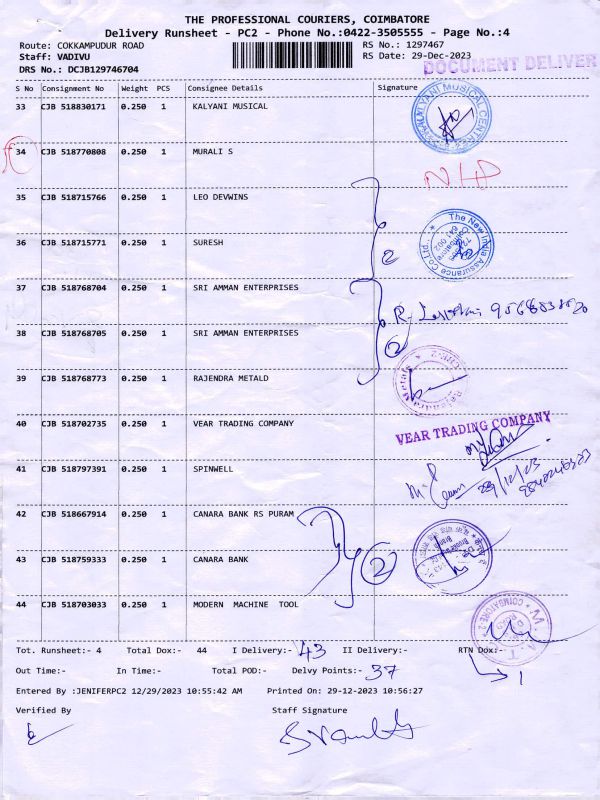 THE PROFESSIONAL COURIERS, COIMBATORE
Delivery Runsheet - PC2 - Phone No.:0422-3505555 - Page No.:4
Route: COKKAMPUDUR ROAD RS No.: 1297467
Staff: VADIVU RS Date: 29-Dec-2023
DRS No.: DCJB129746704
DOCUMENT DELIVER
S No Consignment No Weight PCS Consignee Details Signature
33 CJB 518830171 0.250 1 KALYANI MUSICAL
KALYANI MUSICAL CENTRE
34 CJB 518770808 0.250 1 MURALI S
35 CJB 518715766 0.250 1 LEO DEVWINS
36 CJB 518715771 0.250 1 SURESH 2
The New India Assurance Co.Ltd.
641 002
37 CJB 518768704 0.250 1 SRI AMMAN ENTERPRISES
38 CJB 518768705 0.250 1 SRI AMMAN ENTERPRISES 2
39 CJB 518768773 0.250 1 RAJENDRA METALD
40 CJB 518702735 0.250 1 VEAR TRADING COMPANY
VEAR TRADING COMPANY
41 CJB 518797391 0.250 1 SPINWELL
29/12/23
42 CJB 518667914 0.250 1 CANARA BANK RS PURAM
43 CJB 518759333 0.250 1 CANARA BANK 2
44 CJB 518703033 0.250 1 MODERN MACHINE TOOL
COIMBATORE-2
Tot. Runsheet:- 4 Total Dox:- 44 I Delivery:- 43 II Delivery:- RTN Dox:- 1
Out Time:- In Time:- Total POD:- Delvy Points:- 37
Entered By :JENIFERPC2 12/29/2023 10:55:42 AM Printed On: 29-12-2023 10:56:27
Verified By Staff Signature